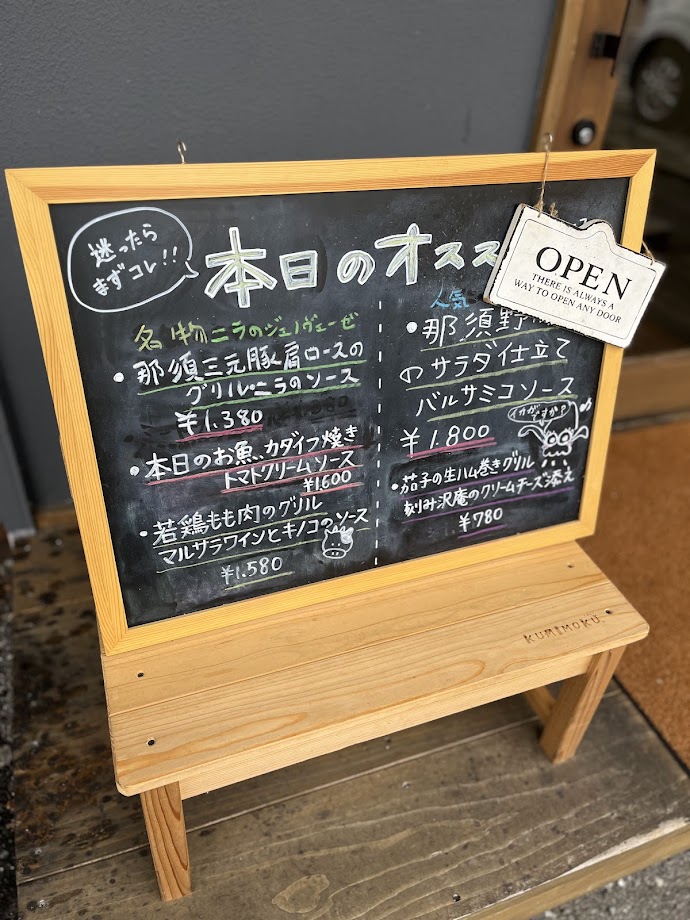 迷ったら
まずコレ!!
本日のオスス
OPEN
THERE IS ALWAYS A
WAY TO OPEN ANY DOOR
名物ニラのジェノヴェーゼ
・那須三元豚肩ロースの
グリルニラのソース
¥1.380
・本日のお魚、カダイフ焼き
トマトクリームソース
¥1.600
・若鶏もも肉のグリル
マルサラワインとキノコのソース
¥1.580
人気
・那須野
のサラダ仕立て
バルサミコソース
¥1.800
イカがですか?
・茄子の生ハム巻きグリル
刻み沢庵のクリームチーズ添え
¥780
KUMIMOKU